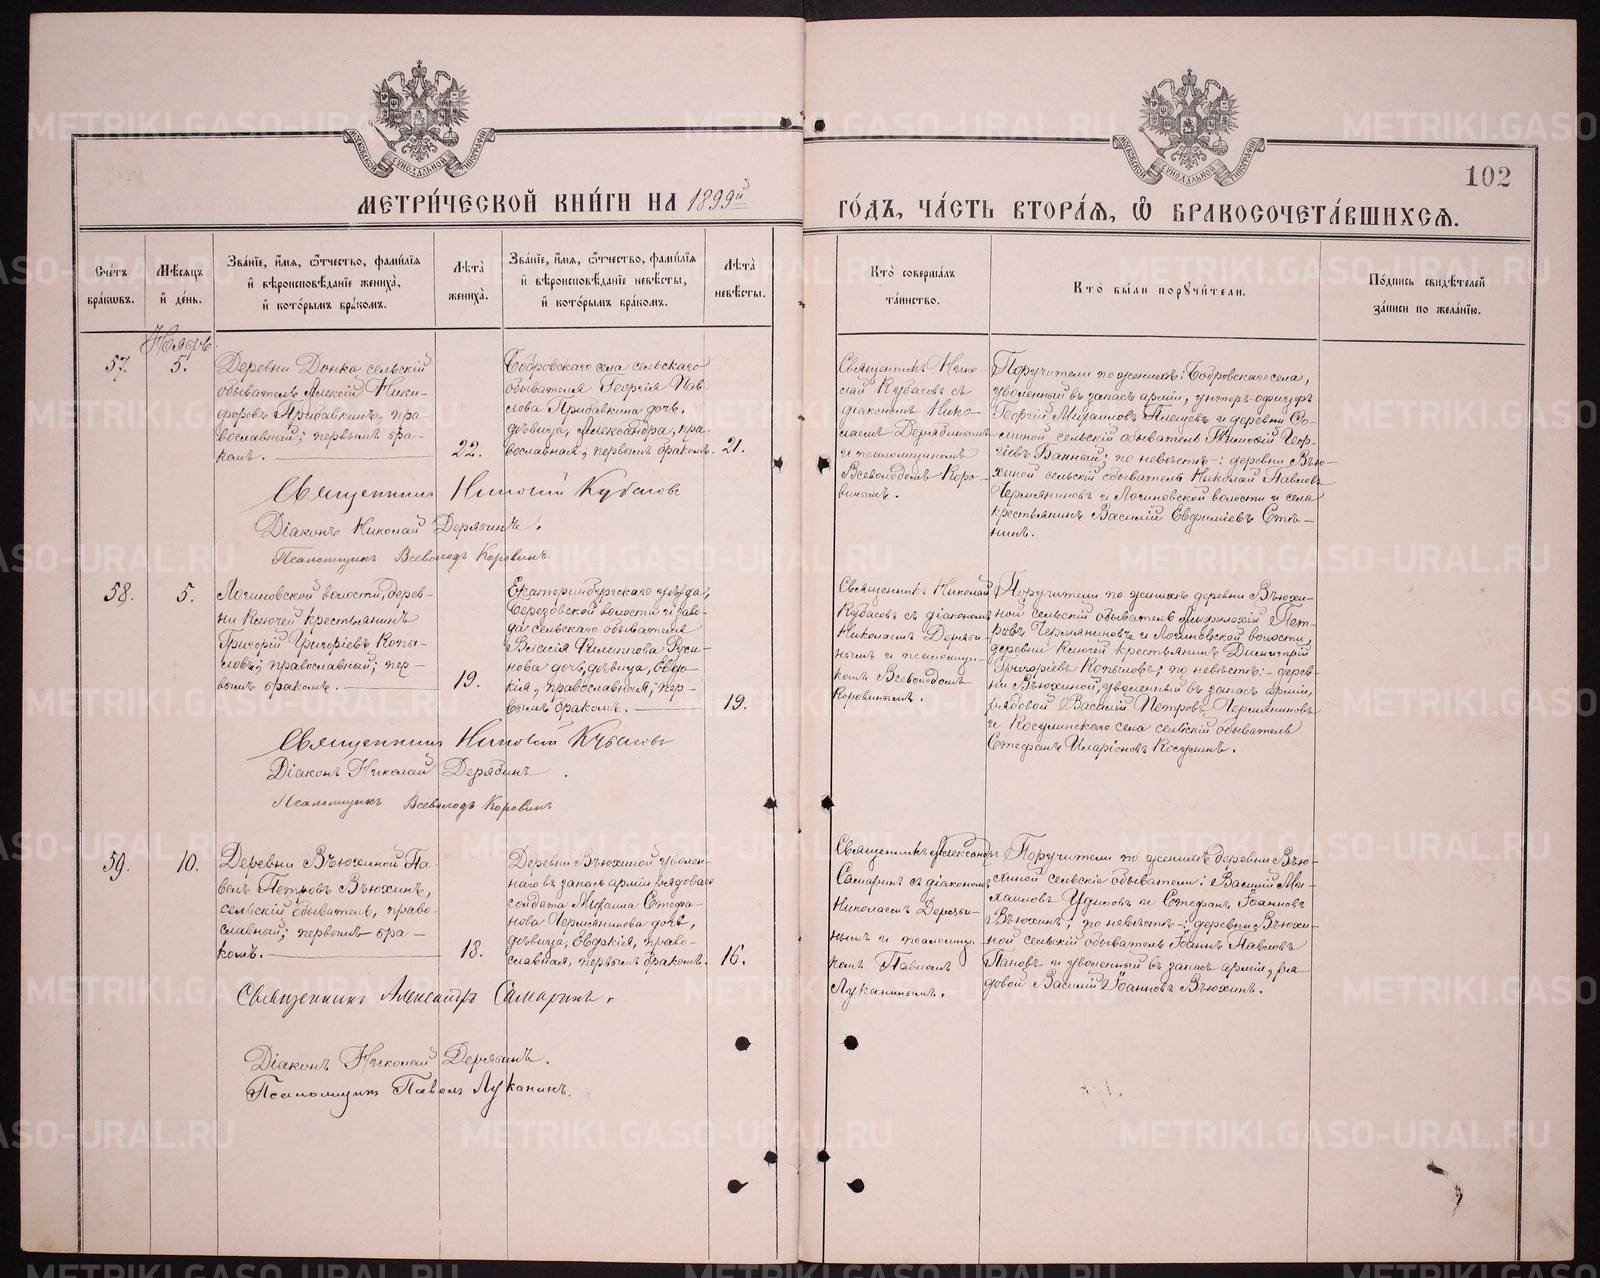 МЕТРИ́ЧЕСКОЙ КНИ́ГИ НА 1899й
ГО́ДЪ, ЧА́СТЬ ВТОРА́Ѧ, Ѡ҆ БРАКОСОЧЕТА́ВШИХСѦ.
102
Сче́тъ бра́кѡвъ.
Мѣ́сѧцъ и҆ де́нь.
Зва́нїе, и҆́мѧ, ѻ҆́тчество, фами́лїѧ и҆ вѣроисповѣ́данїе жениха̀, и҆ кото́рымъ бра́комъ.
Лѣ́та жениха̀.
Зва́нїе, и҆́мѧ, ѻ҆́тчество, фами́лїѧ и҆ вѣроисповѣ́данїе невѣ́сты, и҆ кото́рымъ бра́комъ.
Лѣ́та невѣ́сты.
Кто̀ соверша́лъ та́инство.
Кто̀ бы́ли порꙋчи́тели.
По́дпись свидѣ́телей за́писи по жела́нїю.
Ноябрь
57.
5.
Деревни Донка сельскій
обыватель Алексій Ники-
форовъ Прибавкинъ, пра-
вославный; первымъ бра-
комъ.
22.
Бобровскаго села сельскаго
обывателя Георгія Пав-
лова Прибавкина дочь,
дѣвица, Александра, пра-
вославная, первымъ бракомъ.
21.
Священникъ Нико-
лай Кубасовъ съ
діакономъ Нико-
лаемъ Дерябинымъ
и псаломщикомъ
Всеволодомъ Коро-
винымъ.
Поручители по женихѣ: Бобровскаго села,
уволенный въ запасъ арміи, унтеръ-офицеръ
Георгій Михаиловъ Плецовъ и деревни Со-
линой сельскій обыватель Тимофій Геор-
гіевъ Банный; по невѣстѣ: деревни Въю-
хиной сельскій обыватель Николай Павловъ
Чермяниновъ и Логиновской волости и села
крестьянинъ Василій Евфиміевъ Стѣ-
нинъ.
Священникъ Николай Кубасовъ
Діаконъ Николай Дерябинъ.
Псаломщикъ Всеволодъ Коровинъ.
58.
5.
Логиновской волости, дерев-
ни Ключей крестьянинъ
Григорій Григоріевъ Копы-
ловъ, православный; пер-
вымъ бракомъ.
19.
Екатеринбургскаго уѣзда,
Березовской волости и заво-
да сельскаго обывателя
Власія Филиппова Руси-
нова дочь, дѣвица, Евдо-
кія, православная; пер-
вымъ бракомъ.
19.
Священникъ Николай
Кубасовъ съ діакономъ
Николаемъ Деряби-
нымъ и псаломщи-
комъ Всеволодомъ
Коровинымъ.
Поручители по женихѣ деревни Въюхи-
ной сельскій обыватель Амфилохій Пет-
ровъ Чермяниновъ и Логиновской волости,
деревни Ключей крестьянинъ Димитрій
Григоріевъ Копыловъ; по невѣстѣ: дерев-
ни Въюхиной, уволенный въ запасъ арміи,
рядовой Василій Петровъ Чермяниновъ
и Косулинскаго села сельскій обыватель
Стефанъ Иларіоновъ Косулинъ.
Священникъ Николай Кубасовъ
Діаконъ Николай Дерябинъ.
Псаломщикъ Всеволодъ Коровинъ
59.
10.
Деревни Въюхиной Па-
велъ Петровъ Въюхинъ,
сельскій обыватель, право-
славный; первымъ бра-
комъ.
18.
Деревни Въюхиной уволен-
наго въ запасъ арміи рядоваго
солдата Михаила Стефа-
нова Чермянинова дочь,
дѣвица, Евдокія, право-
славная, первымъ бракомъ.
16.
Священникъ Александръ
Самаринъ съ діакономъ
Николаемъ Деряби-
нымъ и псаломщи-
комъ Павломъ
Луканинымъ.
Поручители по женихѣ деревни Въю-
хиной сельскіе обыватели: Василій Ми-
хаиловъ Удиловъ и Стефанъ Іоанновъ
Въюхинъ; по невѣстѣ: деревни Въюхи-
ной сельскій обыватель Іоаннъ Павловъ
Пановъ и уволенный въ запасъ арміи, ря-
довой Василій Іоанновъ Въюхинъ.
Священникъ Александръ Самаринъ.
Діаконъ Николай Дерябинъ.
Псаломщикъ Павелъ Луканинъ.
METRIKI.GASO-URAL.RU